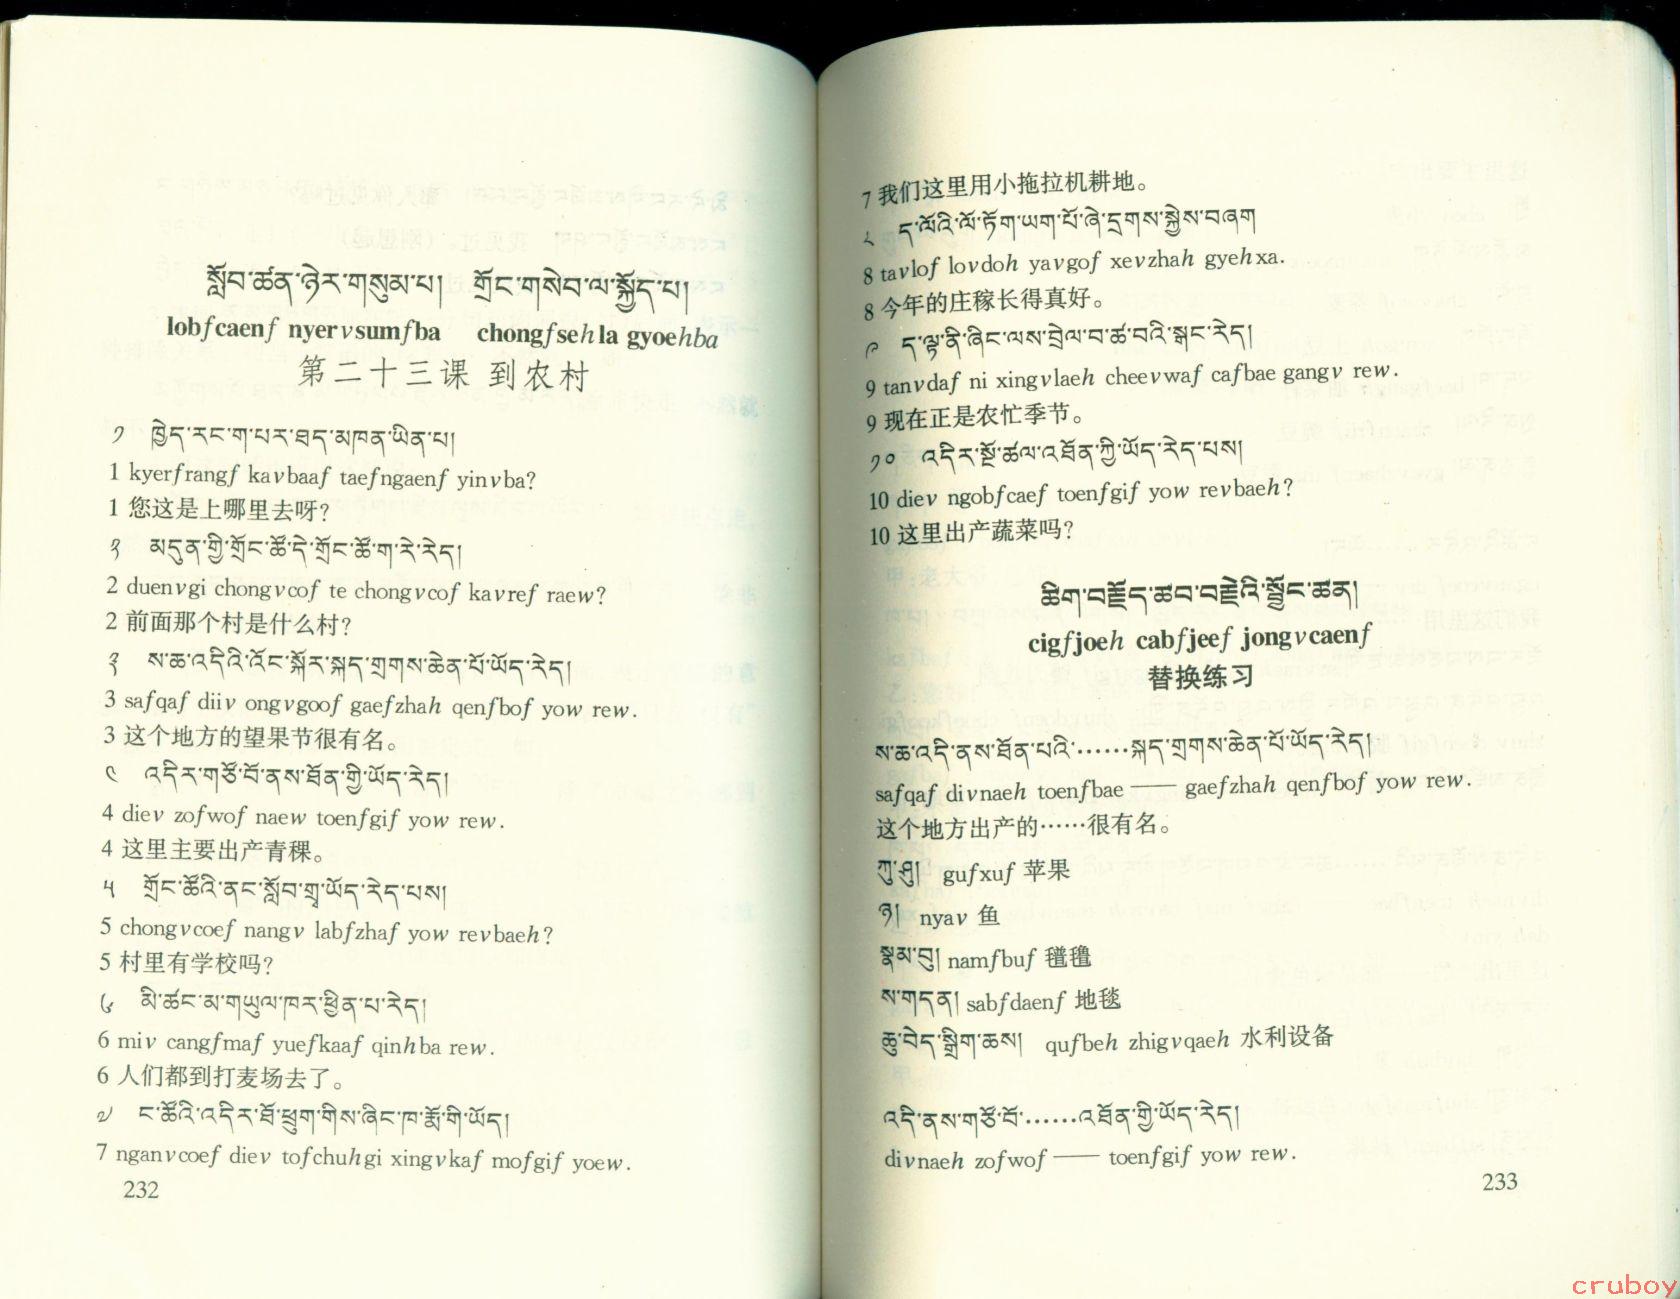 སློབ་ཚན་ཉེར་གསུམ་པ། གྲོང་གསེབ་ལ་སྐྱོད་པ།
lobfcaenf nyervsumfba chongfsehla gyoehba
第二十三课 到农村
༡ ཁྱེད་རང་ག་པར་ཐད་མཁན་ཡིན་པ།
1 kyerfrangf kavbaaf taefngaenf yinvba?
1 您这是上哪里去呀?
༢ མདུན་གྱི་གྲོང་ཚོ་དེ་གྲོང་ཚོ་ག་རེ་རེད།
2 duenvgi chongvcof te chongvcof kavref raew?
2 前面那个村是什么村?
༣ ས་ཆ་འདིའི་འོང་སྐོར་སྐད་གྲགས་ཆེན་པོ་ཡོད་རེད།
3 safqaf diiv ongvgoof gaefzhah qenfbof yow rew.
3 这个地方的望果节很有名。
༤ འདིར་གཙོ་བོ་ནས་ཐོན་གྱི་ཡོད་རེད།
4 diev zofwof naew toenfgif yow rew.
4 这里主要出产青稞。
༥ གྲོང་ཚོའི་ནང་སློབ་གྲྭ་ཡོད་རེད་པས།
5 chongvcoef nangv labfzhaf yow revbaeh?
5 村里有学校吗?
༦ མི་ཚང་མ་གཡུལ་ཁར་ཕྱིན་པ་རེད།
6 miv cangfmaf yuefkaaf qinhba rew.
6 人们都到打麦场去了。
༧ ང་ཚོའི་འདིར་ཐོ་ཕྲུག་གིས་ཞིང་ཁ་རྨོ་གི་ཡོད།
7 nganvcoef diev tofchuhgi xingvkaf mofgif yoew.
232
7 我们这里用小拖拉机耕地。
༨ ད་ལོའི་ལོ་ཏོག་ཡག་པོ་ཞེ་དྲགས་སྐྱེས་བཞག
8 tavlof lovdoh yavgof xevzhah gyehxa.
8 今年的庄稼长得真好。
༩ ད་ལྟ་ནི་ཞིང་ལས་བྲེལ་བ་ཚ་བའི་སྒང་རེད།
9 tanvdaf ni xingvlaeh cheevwaf cafbae gangv rew.
9 现在正是农忙季节。
༡༠ འདིར་སྔོ་ཚལ་འཐོན་གྱི་ཡོད་རེད་པས།
10 diev ngobfcaef toenfgif yow revbaeh?
10 这里出产蔬菜吗?
ཚིག་བརྗོད་ཚབ་བརྗེའི་སྦྱོང་ཚན།
cigfjoeh cabfjeef jongvcaenf
替换练习
ས་ཆ་འདི་ནས་ཐོན་པའི་……སྐད་གྲགས་ཆེན་པོ་ཡོད་རེད།
safqaf divnaeh toenfbae —— gaefzhah qenfbof yow rew.
这个地方出产的……很有名。
ཀུ་ཤུ། gufxuf 苹果
ཉ། nyav 鱼
སྣམ་བུ། namfbuf 氆氇
ས་གདན། sabfdaenf 地毯
ཆུ་བེད་སྒྲིག་ཆས། qufbeh zhigvqaeh 水利设备
འདི་ནས་གཙོ་བོ་……འཐོན་གྱི་ཡོད་རེད།
divnaeh zofwof —— toenfgif yow rew.
233
cruboy